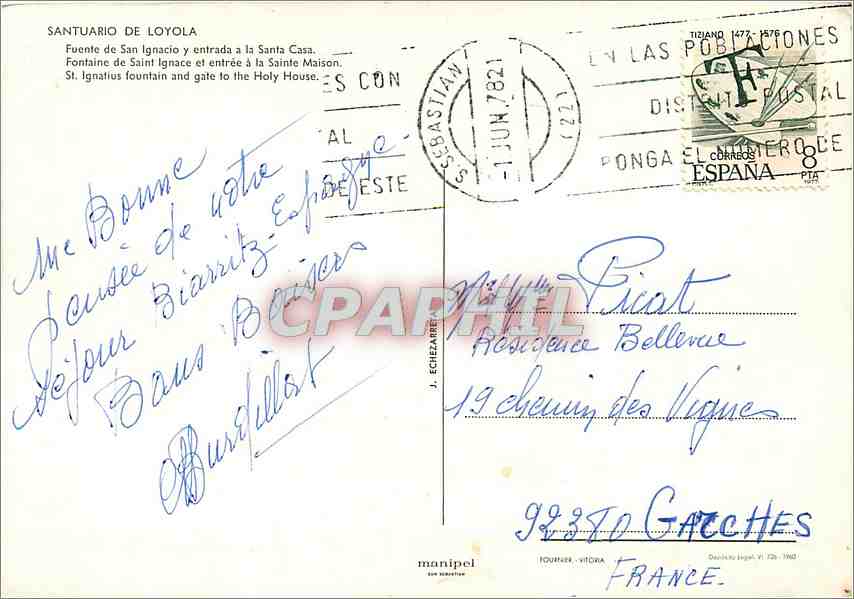 SANTUARIO DE LOYOLA
Fuente de San Ignacio y entrada a la Santa Casa.
Fontaine de Saint Ignace et entrée à la Sainte Maison.
St. Ignatius fountain and gate to the Holy House.
ES CON
AL
DE ESTE
S. SEBASTIAN
-1 JUN. 78 21
(22)
EN LAS POBLACIONES
DISTRITO POSTAL
PONGA EL NUMERO DE
TIZIANO 1477-1576
CORREOS
8
ESPAÑA PTA
1977
Une Bonne
Pensée de notre
séjour Biarritz-Espagne-
Bons Baisers
CPAPHIL
J. ECHEZARRETA
Picat
Résidence Bellevue
19 chemin des Vignes
92380 GARCHES
FRANCE.
manipel
SAN SEBASTIAN
FOURNIER - VITORIA
Depósito Legal, VI. 726 - 1960